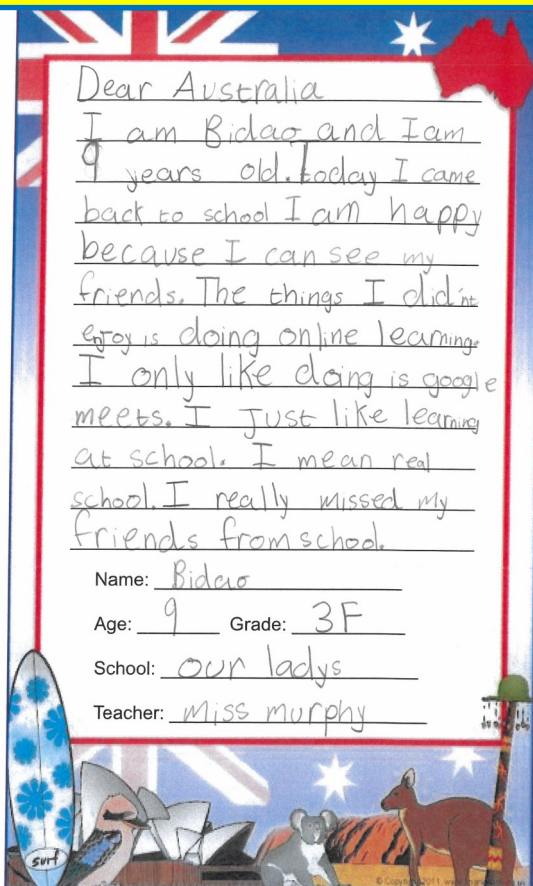 Dear Australia
I am Bidao and I am
9 years old. Today I came
back to school I am happy
because I can see my
friends. The things I did'nt
enjoy is doing online learning.
I only like doing is google
meets. I Just like learning
at school. I mean real
school. I really missed my
friends from school.
Name: Bidao
Age: 9 Grade: 3F
School: our ladys
Teacher: Miss murphy
surf